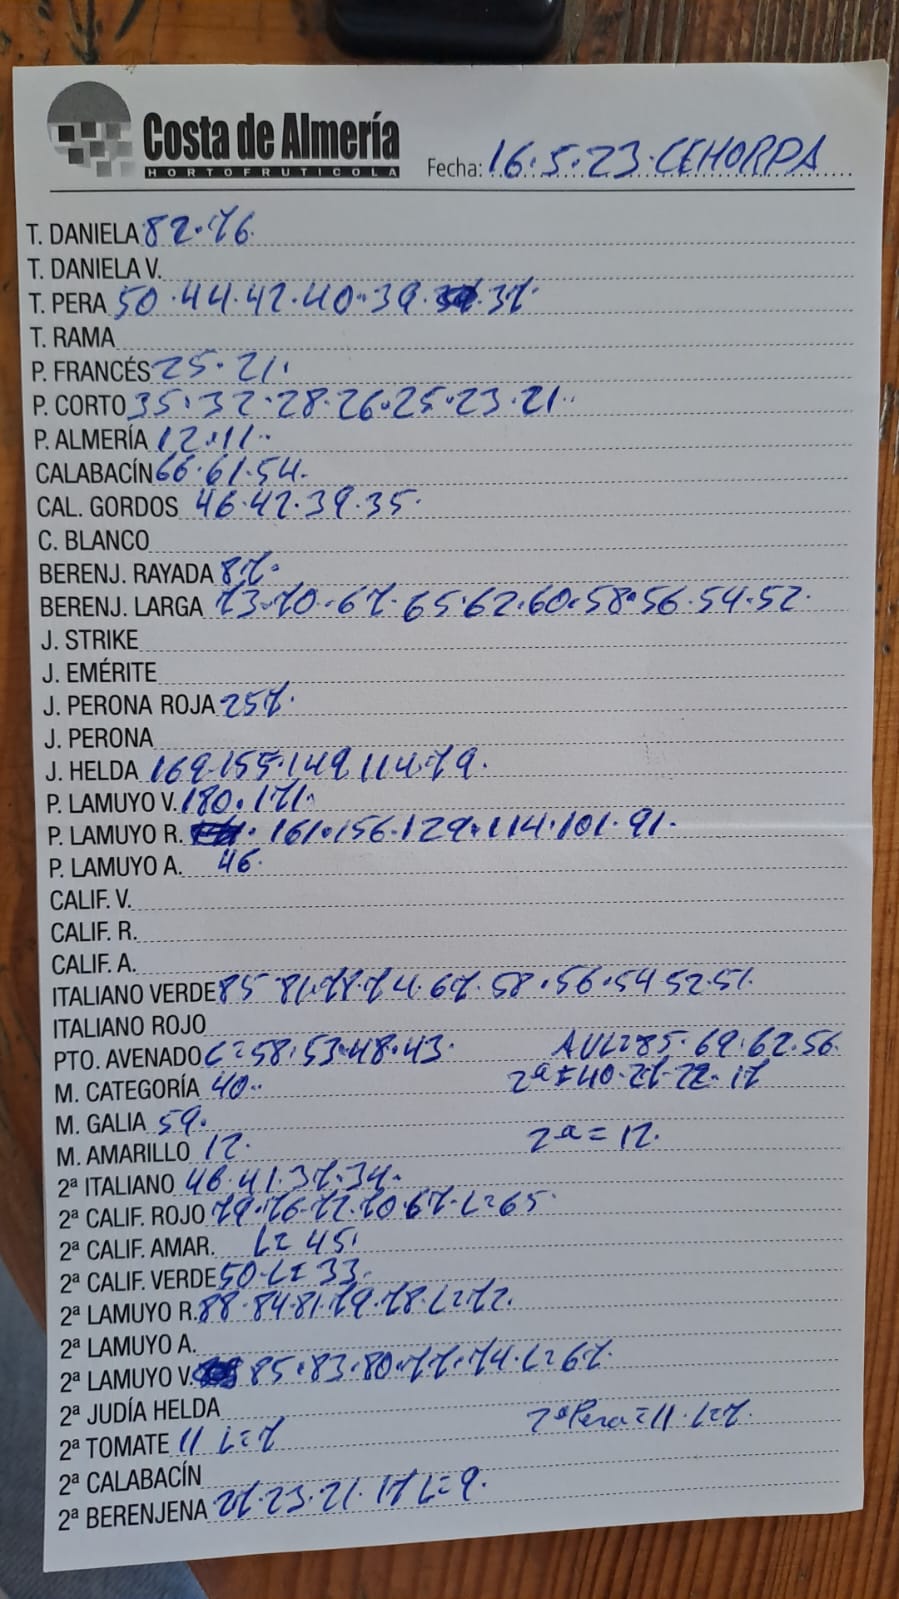 Costa de Almería
HORTOFRUTICOLA
Fecha: 16.5.23.CEHORPA
T. DANIELA 82.76.
T. DANIELA V.
T. PERA 50.44.42.40.39. 37.
T. RAMA
P. FRANCÉS 25.21.
P. CORTO 35.32.28.26.25.23.21.
P. ALMERÍA 12.11.
CALABACÍN 66.61.54.
CAL. GORDOS 46.42.39.35.
C. BLANCO
BERENJ. RAYADA 87.
BERENJ. LARGA 73.70.67.65.62.60.58.56.54.52.
J. STRIKE
J. EMÉRITE
J. PERONA ROJA 257.
J. PERONA
J. HELDA 169.155.149.114.79.
P. LAMUYO V. 180.171.
P. LAMUYO R. 161.156.129.114.101.91.
P. LAMUYO A. 46.
CALIF. V.
CALIF. R.
CALIF. A.
ITALIANO VERDE 85 81.78.74.67.58.56.54 52.51.
ITALIANO ROJO
PTO. AVENADO C=58.53.48.43. AUL=85.69.62.56.
M. CATEGORÍA 40.. 2ª=40.27.22.17
M. GALIA 59.
M. AMARILLO 12. 2ª=12.
2ª ITALIANO 46.41.37.34.
2ª CALIF. ROJO 79.76.72.70.67.L=65.
2ª CALIF. AMAR. L=45.
2ª CALIF. VERDE 50.L=33.
2ª LAMUYO R. 88.84.81.79.78.L=72.
2ª LAMUYO A.
2ª LAMUYO V. 85.83.80.77.74.L=67.
2ª JUDÍA HELDA
2ª TOMATE 11 L=7 2ªPera=11.L=7.
2ª CALABACÍN
2ª BERENJENA 27.23.21.17 L=9.